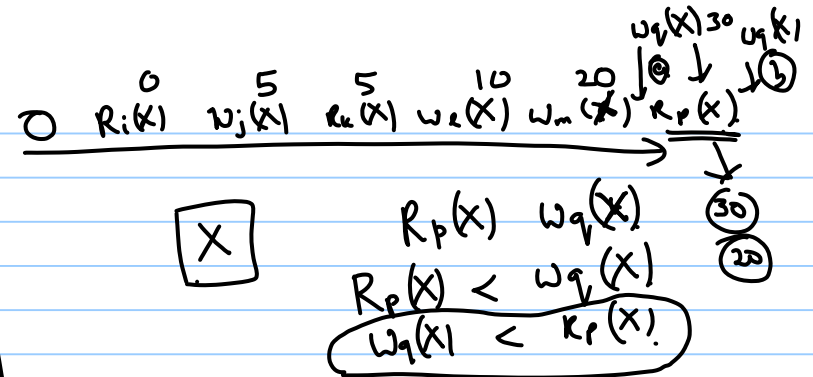 Wq(X) 30 Wq(X)
0 5 5 10 20 a b
0 Ri(X) Wj(X) Rk(X) Wl(X) Wm(X) Rp(X)
X Rp(X) Wq(X) 30
20
Rp(X) < Wq(X)
Wq(X) < Rp(X).